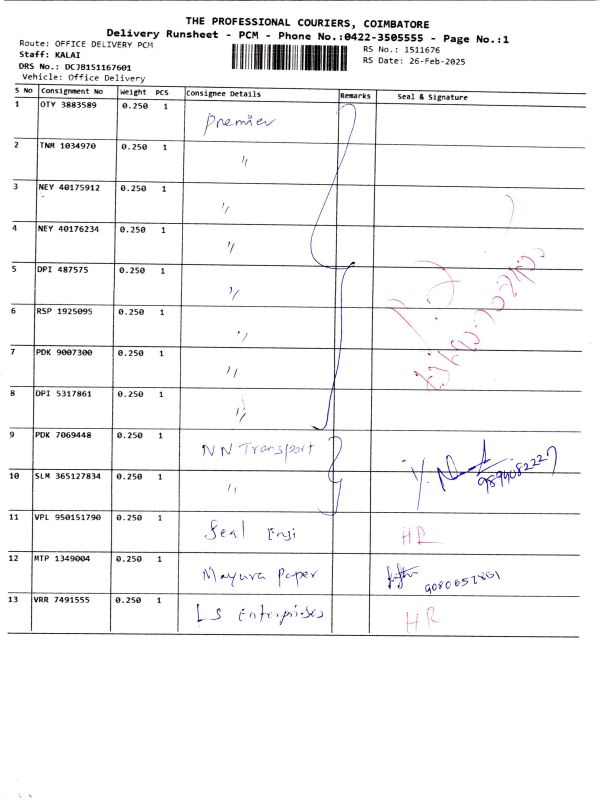 THE PROFESSIONAL COURIERS, COIMBATORE
Delivery Runsheet - PCM - Phone No.:0422-3505555 - Page No.:1
Route: OFFICE DELIVERY PCM
Staff: KALAI
DRS No.: DCJB151167601
Vehicle: Office Delivery
RS No.: 1511676
RS Date: 26-Feb-2025
S No Consignment No Weight PCS Consignee Details Remarks Seal & Signature
1 OTY 3883589 0.250 1 Premier
2 TNM 1034970 0.250 1 "
3 NEY 40175912 0.250 1 "
4 NEY 40176234 0.250 1 "
5 DPI 487575 0.250 1 "
6 RSP 1925095 0.250 1 "
7 PDK 9007300 0.250 1 "
8 DPI 5317861 0.250 1 "
9 PDK 7069448 0.250 1 NN Transport
10 SLM 365127834 0.250 1 "
11 VPL 950151790 0.250 1 Seal Engi HR
12 MTP 1349004 0.250 1 Mayura Paper
13 VRR 7491555 0.250 1 LS Enterprises HR